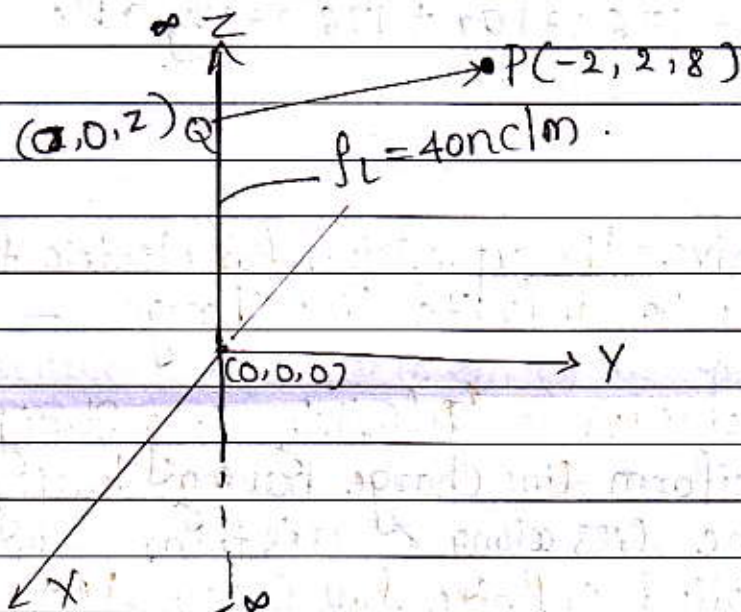 ∞ Z
P(-2, 2, 8)
(0,0,Z) Q
ρL = 40nC/m.
Y
(0,0,0)
X
∞